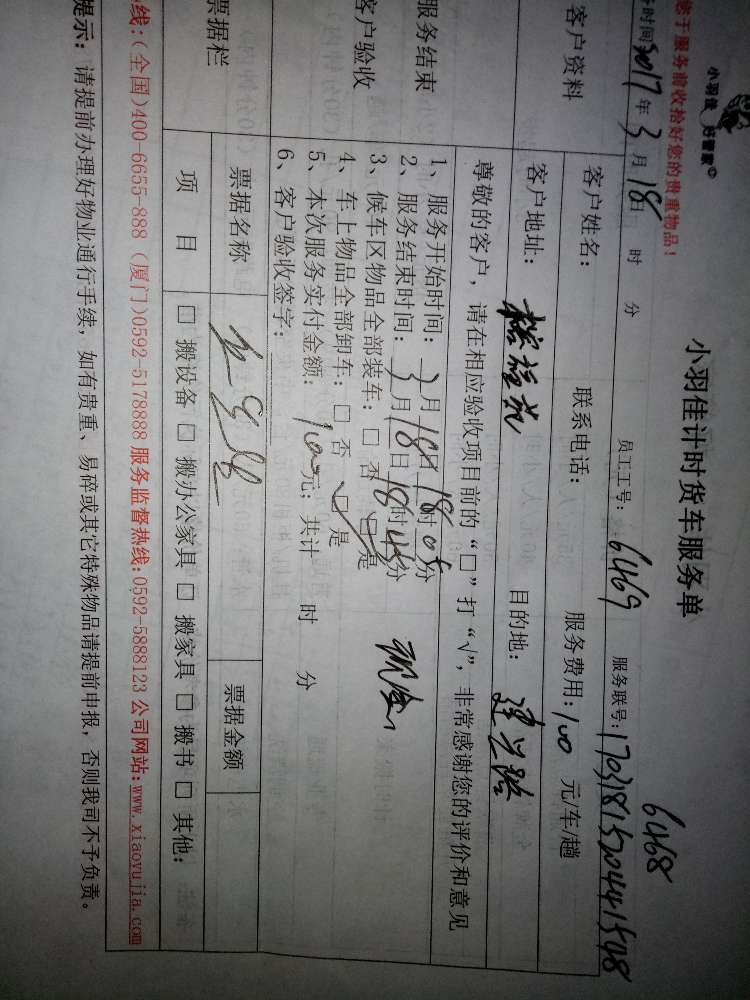 小羽佳 好管家©
您于服务前收拾好您的贵重物品！
小羽佳计时货车服务单
时间2017年3月18日 时 分 员工工号：6469 服务联号：17031815204441548
6468
客户资料 客户姓名： 联系电话： 服务费用：100 元/车/趟
客户地址： 目的地：建兴路
服务结束
客户验收
尊敬的客户，请在相应验收项目前的“□”打“√”，非常感谢您的评价和意见
1、服务开始时间：3月18日18时05分
2、服务结束时间：3月18日18时45分
3、候车区物品全部装车：□ 否 ☑是
4、车上物品全部卸车：□ 否 ☑是
5、本次服务实付金额：100元；共计 时 分
现金
6、客户验收签字：
票据栏 票据名称 票据金额
项 目 □ 搬设备 □ 搬办公家具 □ 搬家具 □ 搬书 □ 其他：
线:(全国)400-6655-888 (厦门)0592-5178888 服务监督热线:0592-5888123 公司网站:www.xiaoyujia.com
提示：请提前办理好物业通行手续，如有贵重、易碎或其它特殊物品请提前申报，否则我司不予负责。